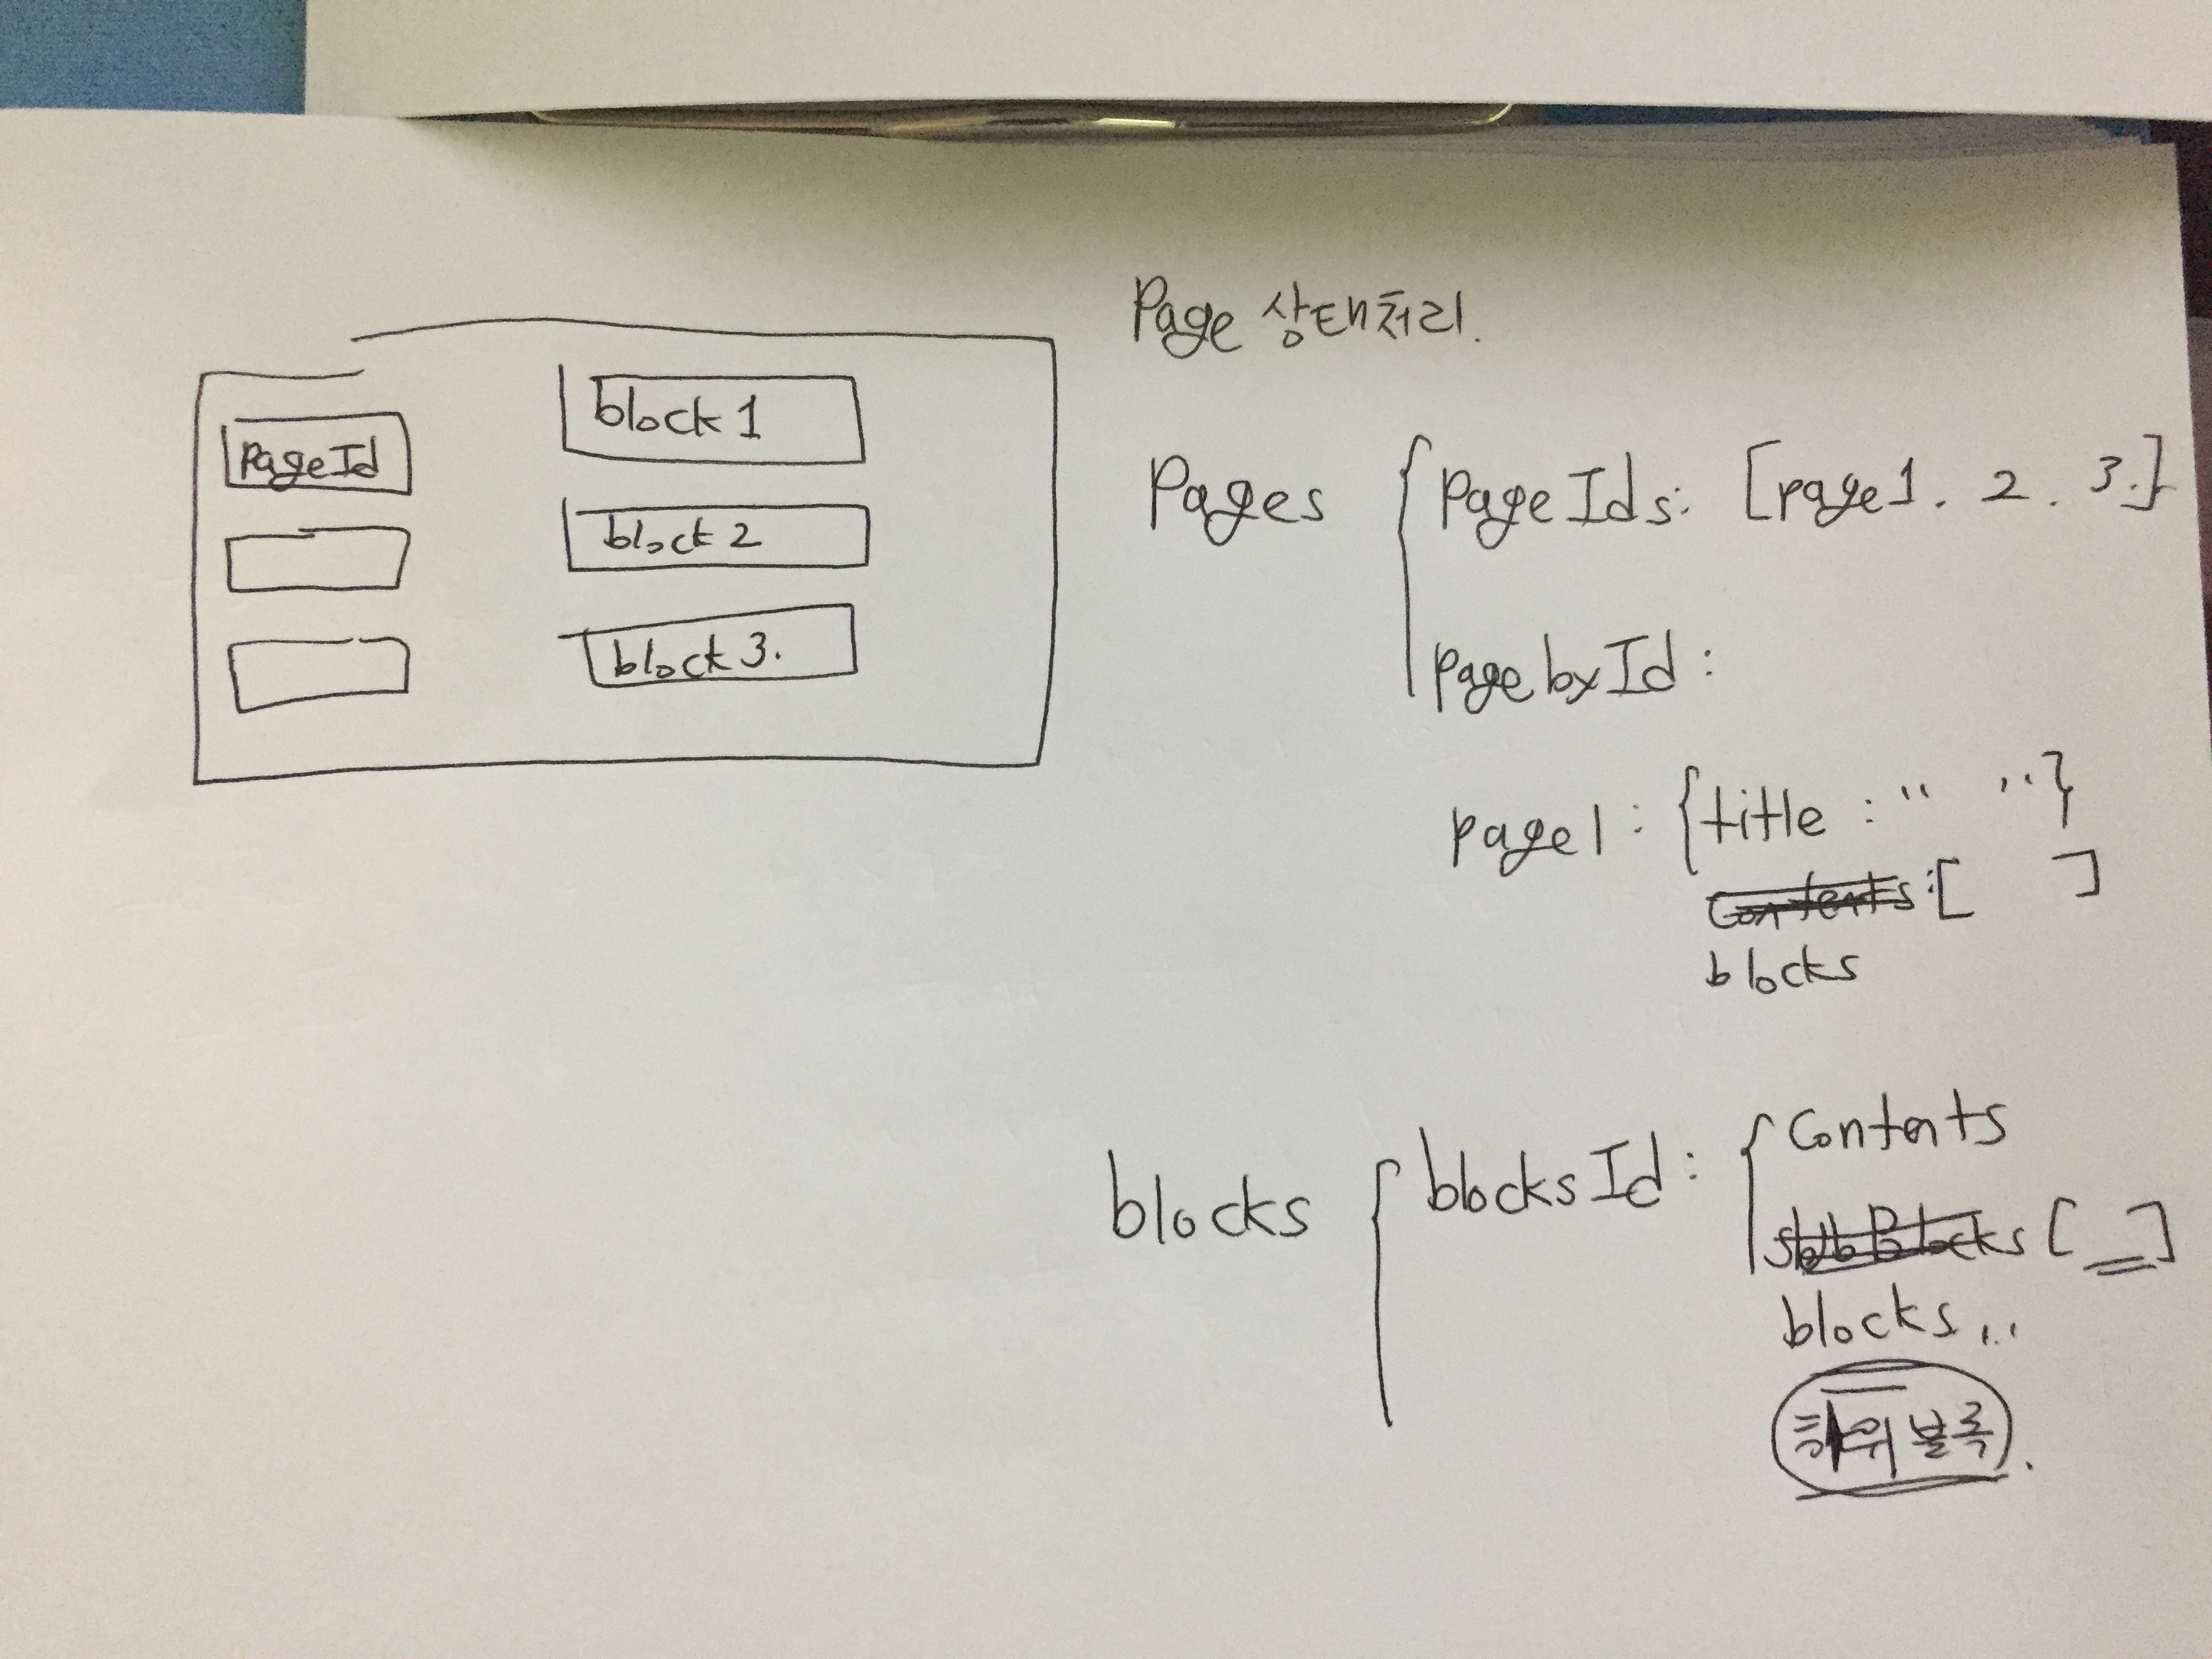 Page 상태처리.
PageId
block 1
block 2
block 3.
Pages { PageIds: [page1. 2. 3.}
page byId :
page1 : {title : " "}
Contents :[ ]
blocks
blocks { blocksId : { Contents
subBlocks [ ]
blocks...
하위 블록.